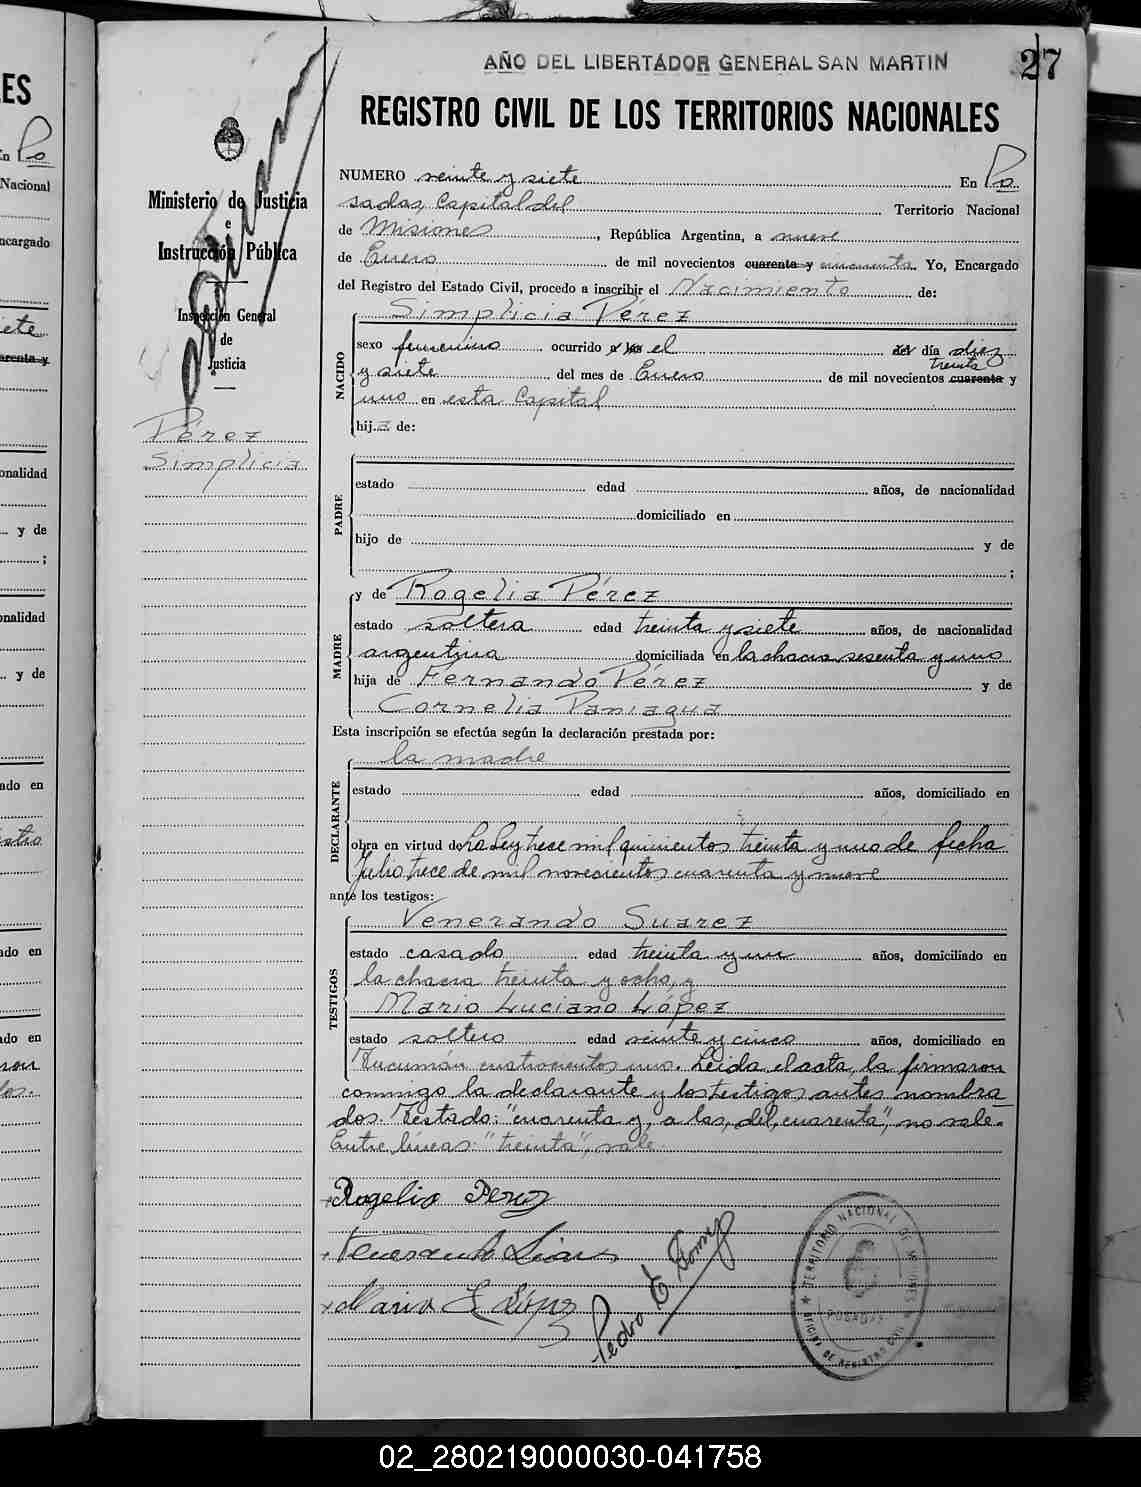 AÑO DEL LIBERTADOR GENERAL SAN MARTIN
27
REGISTRO CIVIL DE LOS TERRITORIOS NACIONALES
Ministerio de Justicia
e
Instrucción Pública
Inspección General
de
Justicia
Pérez
Simplicia
NUMERO veinte y siete En Po
sadas, Capital del Territorio Nacional
de Misiones, República Argentina, a nueve
de Enero de mil novecientos cuarenta y cincuenta. Yo, Encargado
del Registro del Estado Civil, procedo a inscribir el Nacimiento de:
Simplicia Pérez
NACIDO
sexo femenino ocurrido a las el del día diez
treinta
y siete del mes de Enero de mil novecientos cuarenta y
uno en esta Capital
hija de:
PADRE
estado edad años, de nacionalidad
domiciliado en
hijo de y de
;
MADRE
y de Rogelia Pérez
estado soltera edad treinta y siete años, de nacionalidad
argentina domiciliada en la chacra sesenta y uno
hija de Fernando Pérez y de
Cornelia Paniagua
Esta inscripción se efectúa según la declaración prestada por:
la madre
DECLARANTE
estado edad años, domiciliado en
obra en virtud de La Ley trece mil quinientos treinta y uno de fecha
Julio trece de mil novecientos cuarenta y nueve
ante los testigos:
TESTIGOS
Venerando Suarez
estado casado edad treinta y un años, domiciliado en
la chacra treinta y ocho, y
Mario Luciano López
estado soltero edad veinte y cinco años, domiciliado en
Tucumán cuatrocientos uno. Leida el acta, la firmaron
conmigo la declarante y los testigos antes nombra
dos. Testado: "cuarenta y, a las, del, cuarenta", no vale.
Entre líneas: "treinta", vale.
Rogelia Perez
Mario L López
Pedro E Gomez
TERRITORIO NACIONAL DE MISIONES
POSADAS
OFICINA DE REGISTRO CIVIL
ES
En Po
Nacional
ncargado
iete
arenta y
onalidad
y de
;
onalidad
y de
ado en
ado en
ado en
02_280219000030-041758